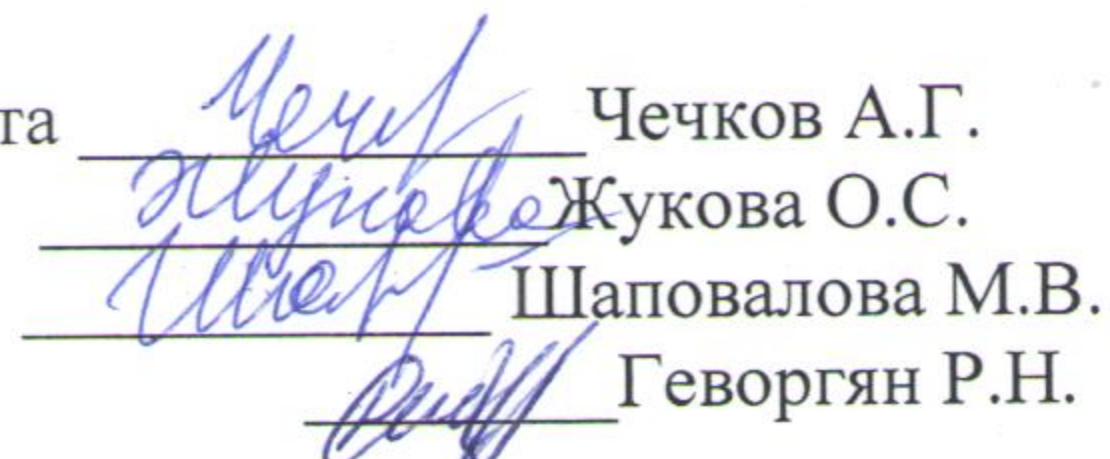 та Чечков А.Г.
Жукова О.С.
Шаповалова М.В.
Геворгян Р.Н.